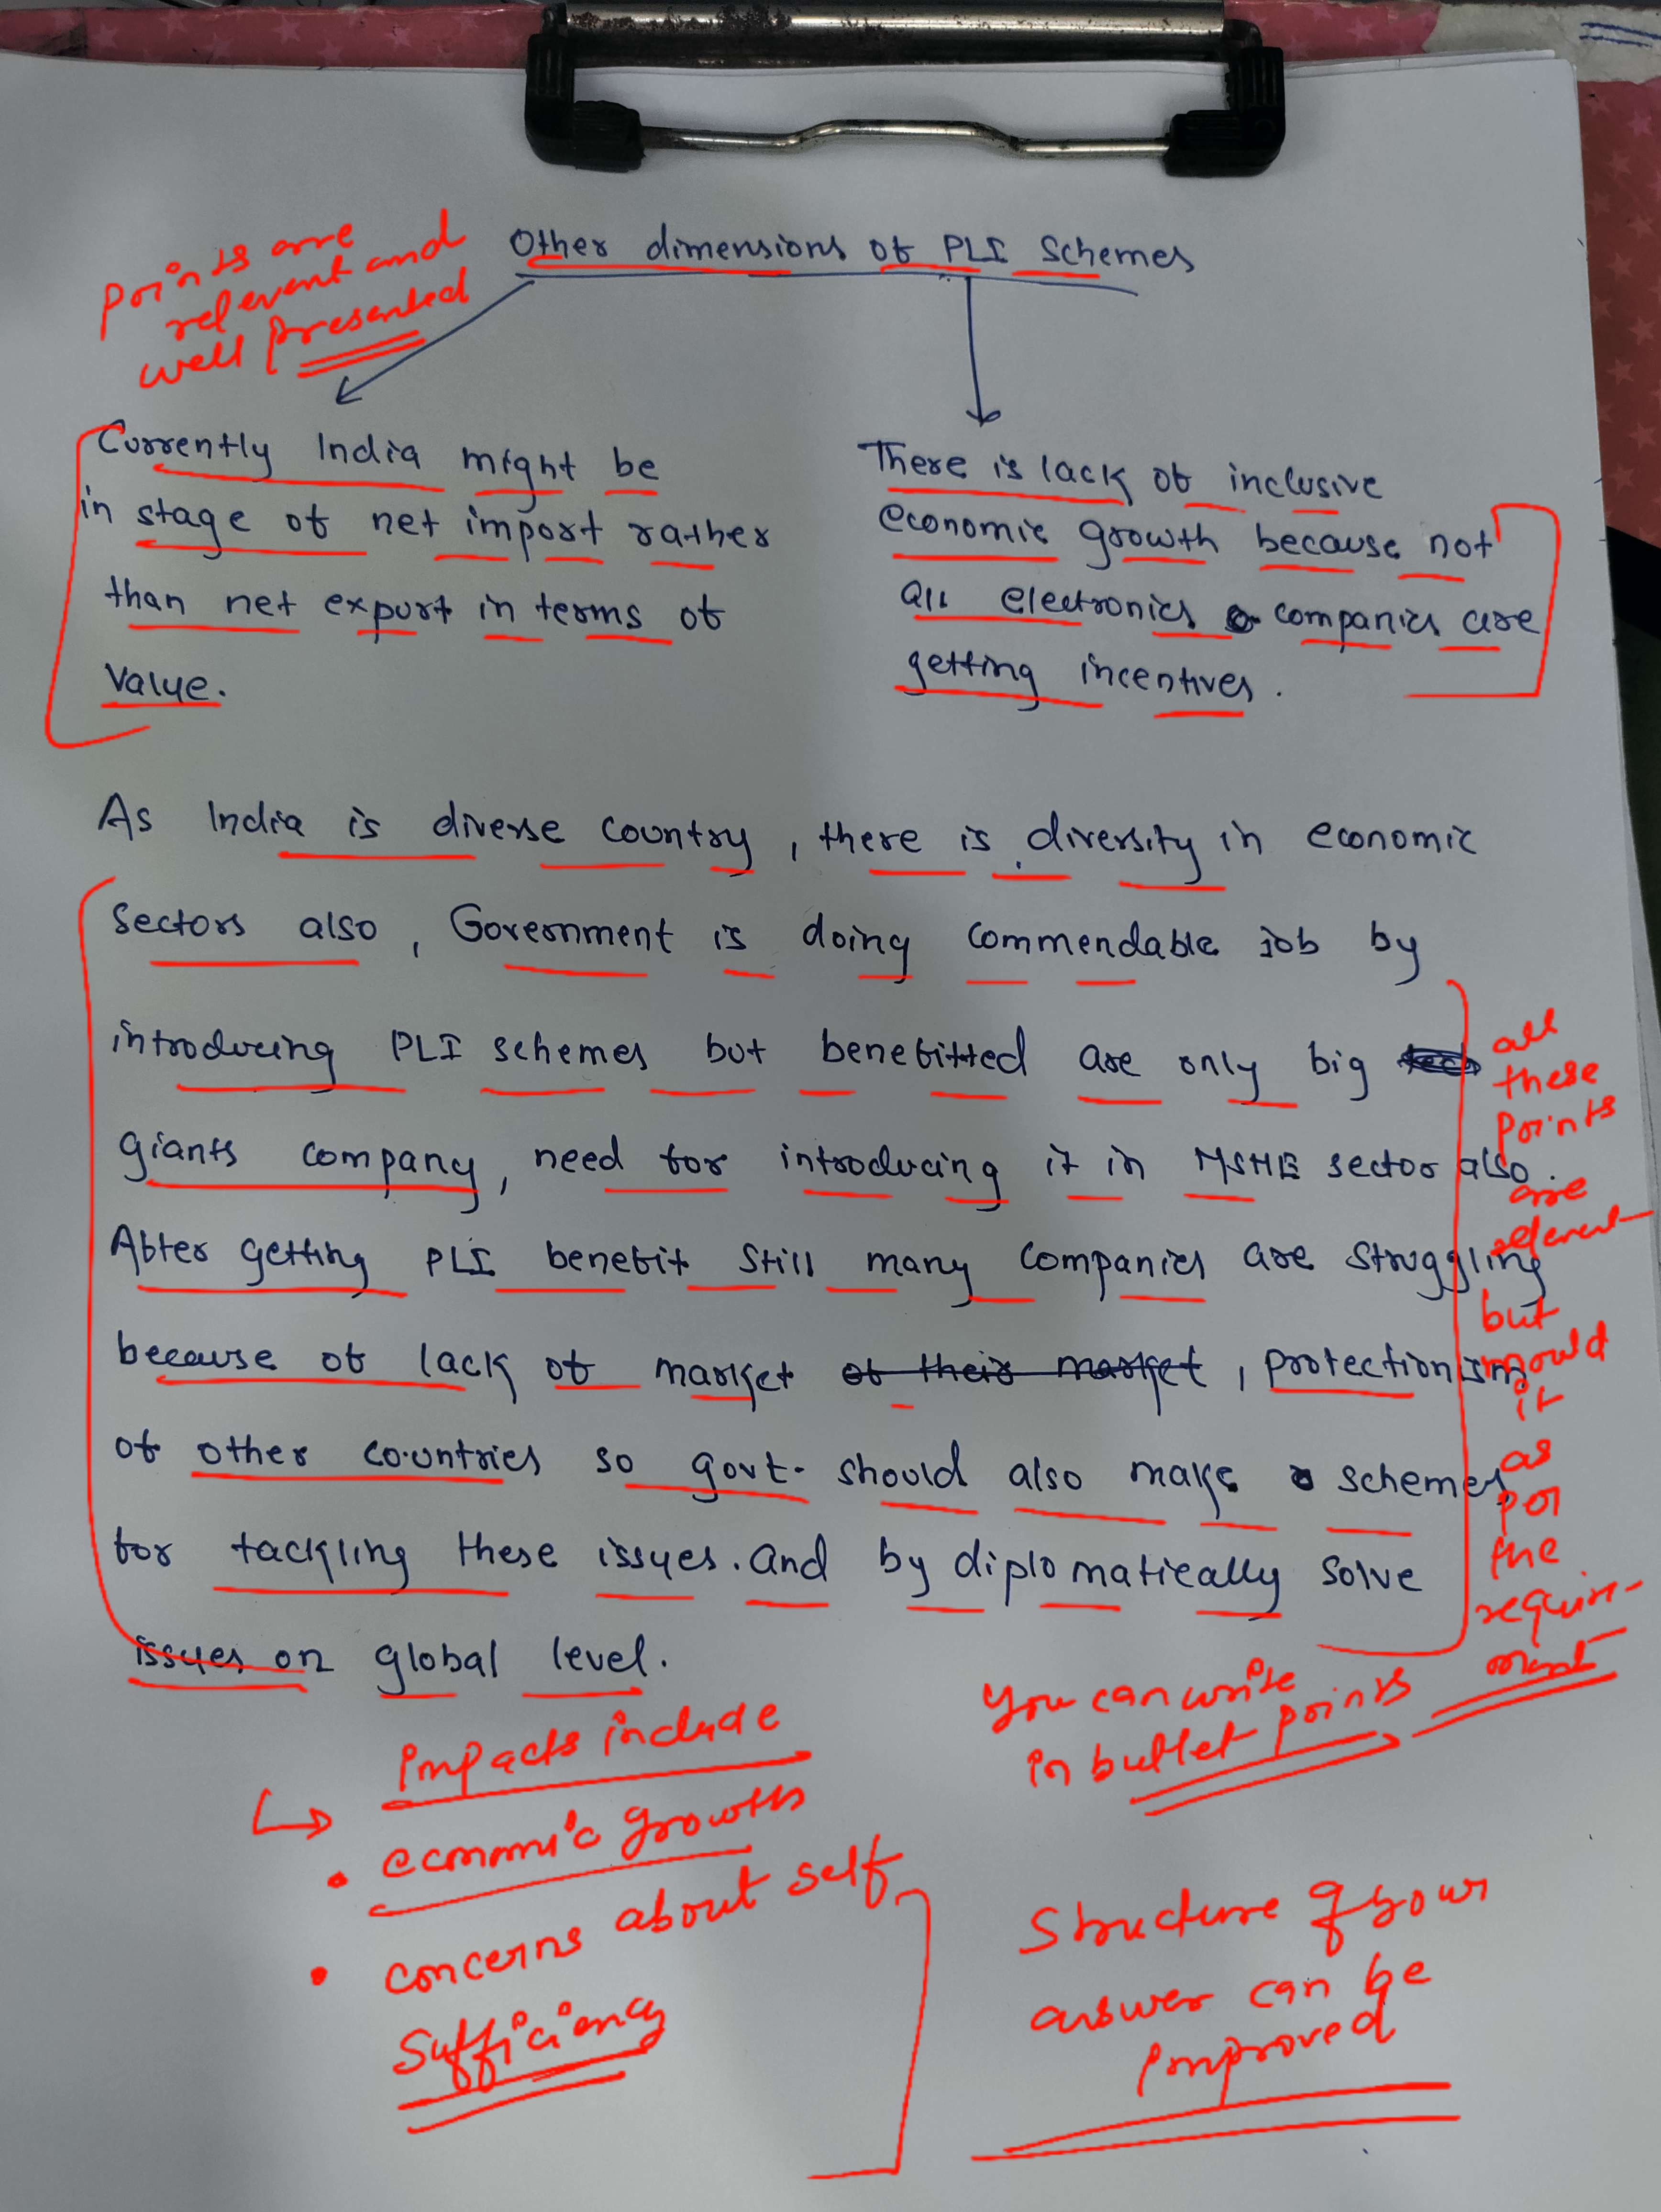 Other dimensions of PLI Schemes
Points are
relevent and
well presented
Currently India might be
in stage of net import rather
than net export in terms of
Value.
There is lack of inclusive
economic growth because not
all electronics companies are
getting incentives.
As India is diverse country, there is diversity in economic
sectors also, Government is doing commendable job by
introducing PLI schemes but benefitted are only big
giants company, need for introducing it in MSME sector also.
After getting PLI benefit still many companies are struggling
because of lack of market of their market, protectionism
of other countries so govt. should also make schemes
for tackling these issues. and by diplomatically solve
issues on global level.
all
these
points
are
relevent
but
mould
it
as
per
the
require-
ment
You can write
in bullet points
Impacts include
economic growth
concerns about self
sufficiency
Structure of your
answer can be
improved